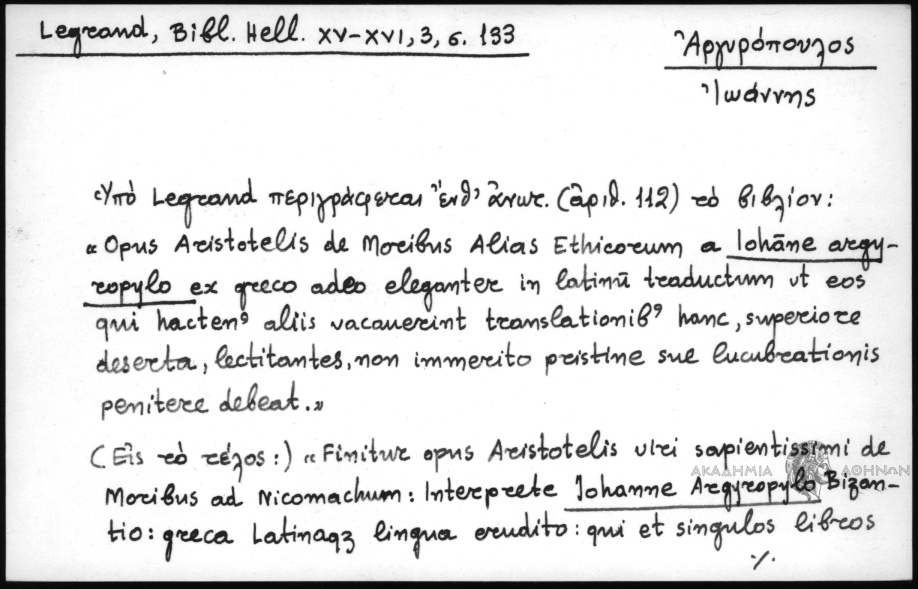 Legrand, Bibl. Hell. XV-XVI, 3, σ. 133
Ἀργυρόπουλος
Ἰωάννης
Ὑπό Legrand περιγράφεται ἔνθ' ἀνωτ. (ἀριθ. 112) τό βιβλίον:
« Opus Aristotelis de Moribus Alias Ethicorum a Iohāne argy-
ropylo ex greco adeo eleganter in latinū traductum ut eos
qui hactenꝰ aliis vacauerint translationibꝰ hanc, superiore
deserta, lectitantes, non immerito pristine sue lucubrationis
penitere debeat. »
(Εἰς τό τέλος:) « Finitur opus Aristotelis viri sapientissimi de
Moribus ad Nicomachum: Interprete Johanne Argyropylo Bizan-
tio: greca Latinaqꝫ lingua erudito: qui et singulos libros
./.
ΑΚΑΔΗΜΙΑ ΑΘΗΝΩΝ